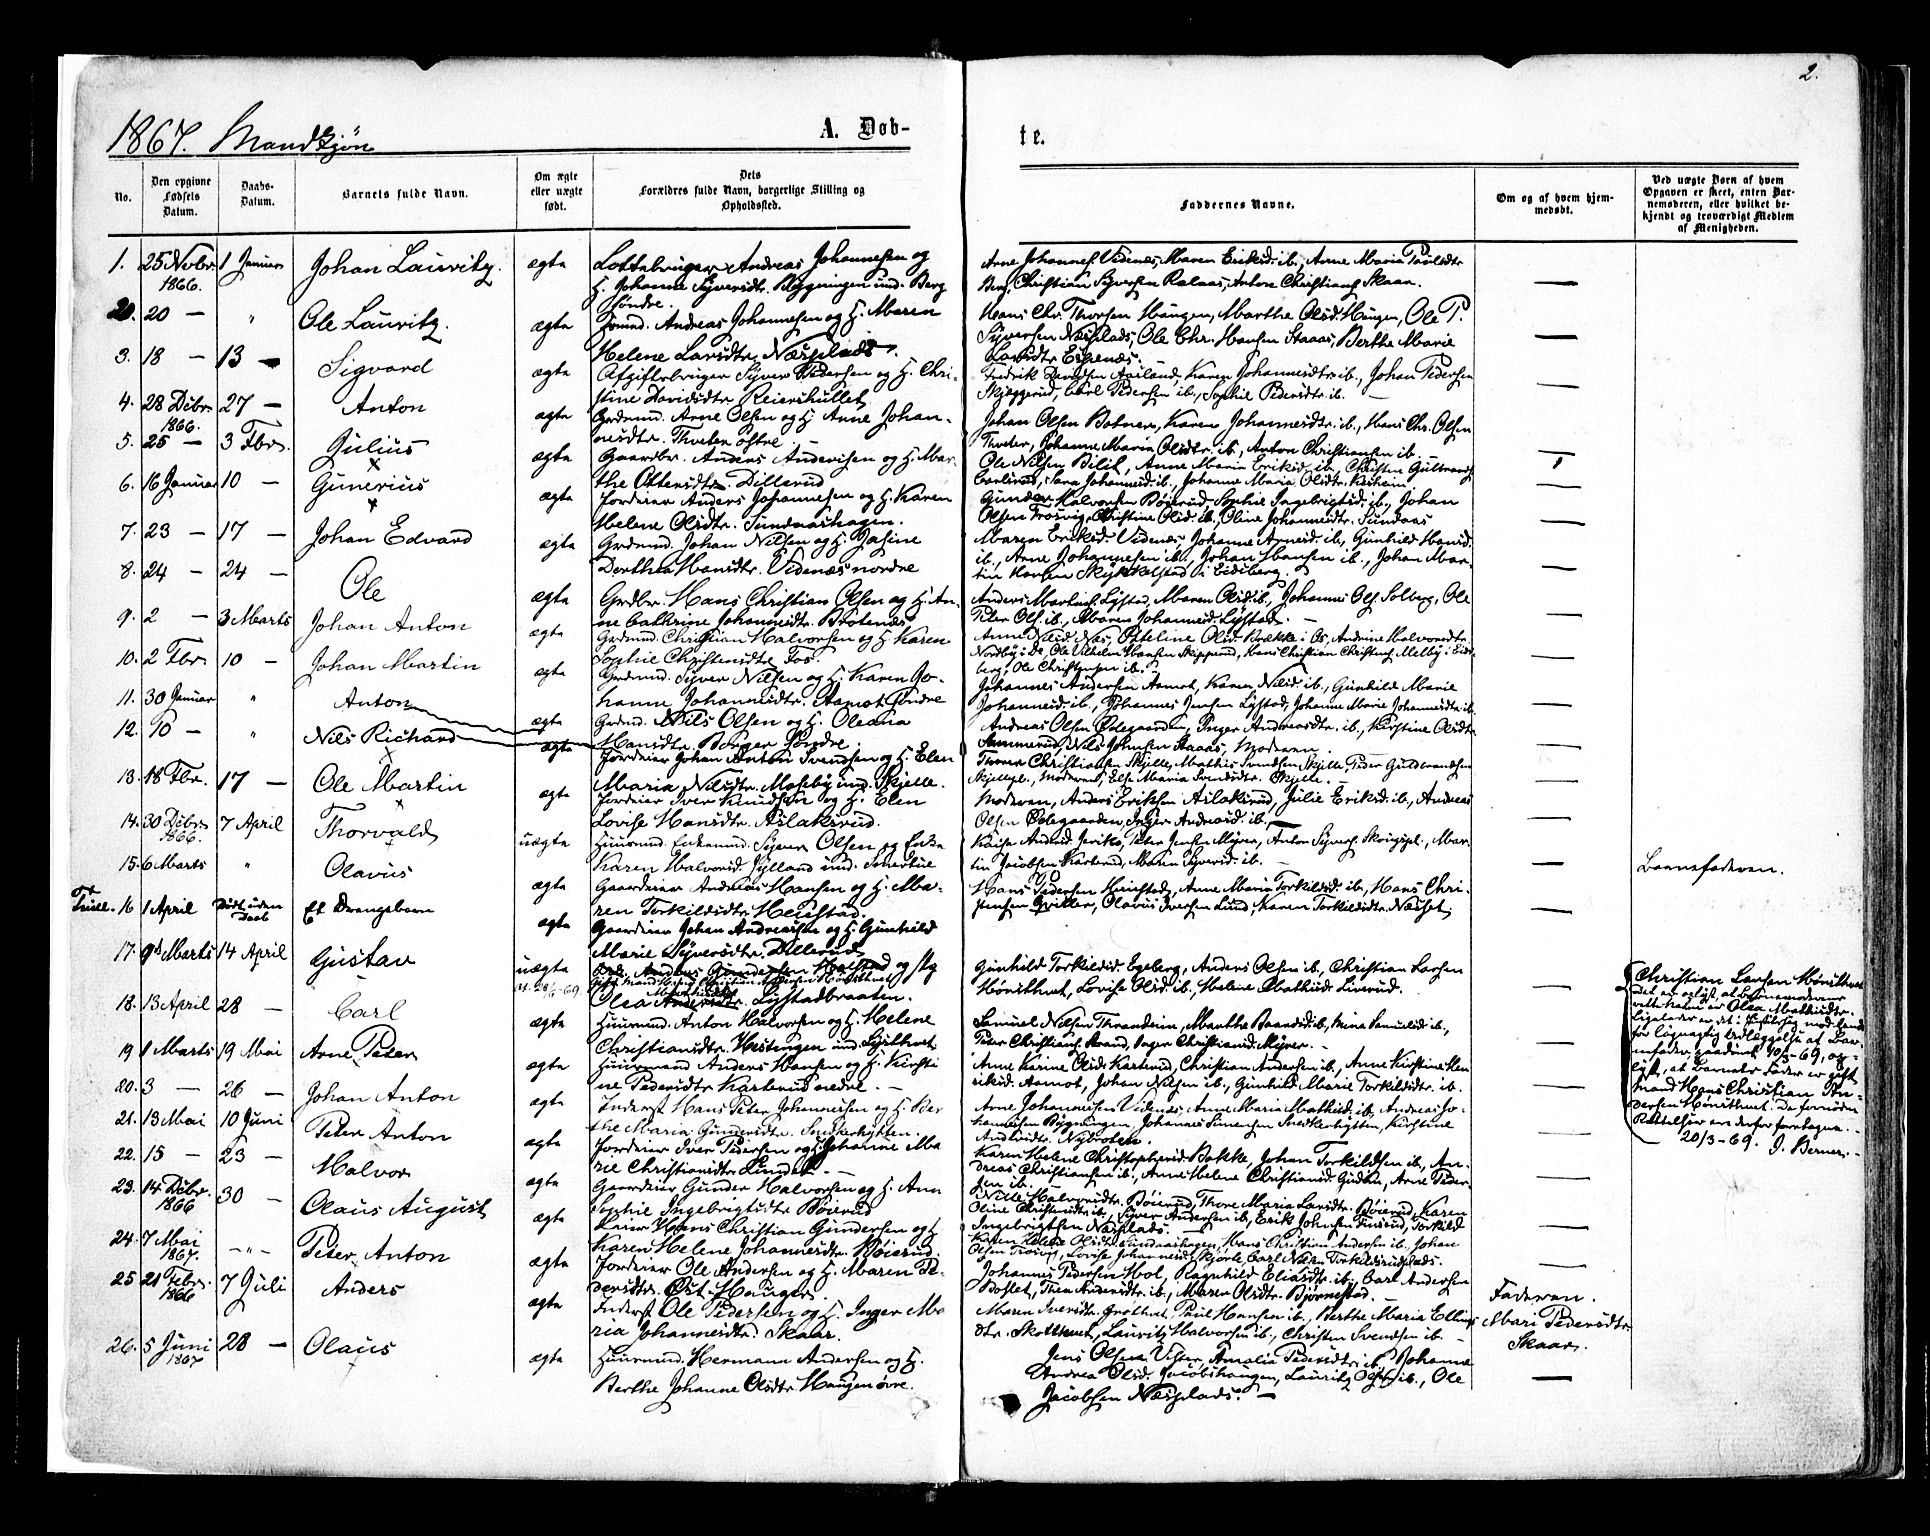 2.
1867. Mandkjøn
A. Døb-
te.
No.
Den opgivne Fødsels Datum.
Daabs-Datum.
Barnets fulde Navn.
Om ægte eller uægte født.
Dets Forældres fulde Navn, borgerlige Stilling og Opholdssted.
Faddernes Navne.
Om og af hvem hjemmedøbt.
Ved uægte Børn af hvem Opgaven er skeet, enten Barnemoderen, eller hvilket bekjendt og troværdigt Medlem af Menigheden.
1. 25 Novbr 1866. 1 Januar Johan Lauritz. ægte Andreas Johannesen og
H. Johanne Syversdtr. Bygningen und. Berg
Søndre.
Arne Johannes Videnes, Maren Eriksd. ib., Anne Maria Paulsdtr
Berg, Christian Syversen Ralaas, Anton Christians Skaar.
2. 20 — " Ole Lauritz. ægte Huusmd. Andreas Johannesen og H. Maren
Helene Larsdtr. Næsplads.
Hans Chr. Thorsen Haugen, Marthe Olsd. Haugen, Ole P.
Syversen Næsplads, Ole Chr. Hansen Staaas, Berthe Marie
Larsdtr
3. 18 — 13 — Sigvard ægte Afgiftsbruger Syver Pedersen og H. Chri-
stine Davidsdtr. Reiershullet.
Fredrik Davidsen Aasland, Karen Johannesdtr. ib., Johan Pedersen
Skjæggerud, Carl Pedersen ib., Sophie Pedersdtr. ib. —
4. 28 Dcbr. 1866. 27 — Anton ægte Grdmd. Arne Olsen og H. Anne Johan-
nesdtr. Thveten østre. —
Johan Olsen Botner, Karen Johannesdtr. ib., Hans Chr. Olsen
Thveter, Johanne Maria Olsdtr. ib., Anton Christiansen ib.
5. 25 — 3 Fbr. Julius ægte Gaardbr. Anders Andersen og H. Mar-
the Ottersdtr. Dillerud
Ole Nilsen Bilit, Anne Maria Eriksd. ib., Christen
Sara Johannesd. ib., Johanne Maria Olsdtr.
6. 16 Januar 10 — Gunerius ægte Jordeier Anders Johannesen og H. Karen
Helene Olsdtr. Sundaashagen.
Gunder Halvorsen Bøierud, Sophie Ingebrigtsd. ib., Johan
Olsen Trosvig, Christine Olsd. ib., Oline Johannesdtr. Sundaas
7. 23 — 17 — Johan Edvard ægte Grdmd. Johan Nilsen og H. Josine
Dorthea Hansdtr. Videnæs nordre
Maren Eriksd. Videnes, Johanne Arnesd. ib., Gunhild Hansd.
ib., Arne Johannesen ib., Johan Hansen ib., Johan Mar-
tin Karlsen i Eidsberg.
8. 24 — 24 — Ole ægte Grdbr. Hans Christian Olsen og H. An-
ne Cathrine Johannesdtr. Brotenæs
Anders Lystad, Maren Olsd. ib., Johannes Ols. Solberg, Ole
Peter Ols. ib., Maren Johannesd. Lystad. —
9. 2 — 3 Marts Johan Anton ægte Grdmd. Christian Halvorsen og H. Karen
Sophie Christensdtr. Fos.
Anne Nilsd. Næs, Olsd. Krække i Os, Andrine Halvorsdtr.
Nordby i Do, Ole Vilhelm Hansen Skipperud, Hans Christian Christens. Melby i Eids-
berg, Ole Christensen ib. —
10. 2 Fbr. 10 — Johan Martin ægte Grdmd. Syver Nilsen og H. Karen Jo-
hanne Johannesdtr. Aamot Søndre
Johannes Andersen Aamot, Karen Nilsd. ib., Gunhild Marie
Johannesd. ib., Johannes Jensen Lystad, Johanne Marie Johannesdtr. ib.
11. 30 Januar " Anton ægte Grdmd. Nils Olsen og H. Oleana
Hansdtr. Berger Søndre
Andreas Olsen Ødegaarden, Inger Andreasdtr. ib., Kirstine Olsdtr.
Sommerud, Nils Johnsen Staaas, Moderen.
12. 10 — " Nils Richard ægte Jordeier Johan Anton Svendsen og H. Elen
Maria Nilsdtr. Moseby und. Skjelle.
Thorer Christiansen Skjelle, Mathis Svendsen Skjelle, Peder Guldbrandsen
Skjellepl., Moderen, Else Maria Svendsdtr. Skjelle. —
13. 18 Fbr. 17 — Ole Martin ægte Jordeier Iver Knudsen og H. Elen
Lovise Hansdtr. Aslaksrud.
Moderen, Anders Eriksen Aslaksrud, Julie Eriksd. ib., Andreas
Olsen Ødegaarden, Inger Andreasd. ib., —
14. 30 Dcbr. 1866. 7 April Thorvald uægte Huusmd. Enkemd. Syver Olsen og Enke
Karen Halvorsd. Jylland und.
Kaise Andersd. Peter Jensen Myrer, Anton Syvers. Mar-
tin Jacobsen Karterud, Maren Syversd. ib. —
Barnefaderen.
15. 6 Marts " Olavus ægte Gaardeier Andreas Hansen og H. Ma-
ren Torkildsdtr. Heiestad.
Hans Pedersen Heiestad, Anne Maria Torkildsd. ib., Hans Chri-
stensen Griller, Olavus Iversen Lund, Karen Torkildsdtr. Næsset.
16 1 April Dødt uden Daab Et Drengebarn ægte Gaardeier Johan Andreassen og H. Gunhild
Marie Syversdtr. Dillerud
17. 9de Marts 14 April Gustav uægte
Olea Lystadbraaten.
Gunhild Torkildsd. Egeberg, Anders Olsen ib., Christian Larsen
Hønsthvet, Lovise Olsd. ib., Helene Mathisd. Linerud.
Christian Larsen Hønsthvet
20/3–69. J. Berner.
18. 13 April 28 — Carl ægte Huusmd. Anton Halvorsen og H. Helene
Christiansdtr. Hestingen und. Lysthvet
Samuel Nilsen Thrandem, Marthe ib., Mina Samuelsd. ib.,
Peter Christians. Strand, Inger Christiansd. Myrer. —
19 1 Marts 19 Mai Arne Peter ægte Huusmand Anders Hansen og H. Kirsti-
ne Pedersdtr. Karterud nedre. —
Anne Karine Olsd. Karterud, Christian Andersen ib., Anne Kirstine Hen-
riksd. Aamot, Johan Nilsen ib., Gunhild Marie Torkildsdtr. ib.
20. 3 — 26 — Johan Anton ægte Inderst Hans Peter Johannesen og H. Ber-
the Maria Gundersdtr. Snedkerhytten.
Arne Johannesen Videnes, Anne Maria Mathisd. ib., Andreas Jo-
hannesen Bygningen, Johannes Simensen Snedkerhytten, Kirstine
21. 13 Mai 10 Juni Peter Anton ægte Jordeier Iver Pedersen og H. Johanne Ma-
rie Christiansdtr. Lundet —
Karen Helene Christophersd. Bakke, Johan Torkildsen ib., An-
dreas Christiansen ib., Anne Helene Christiansd. Arne Peder-
sen ib. —
22. 15 — 23 — Halvor ægte Gaardeier Gunder Halvorsen og H. Ann
Sophie Ingebrigtsdtr. Bøierud
Nille Halvorsdtr. Bøierud, Thore Maria Larsdtr. Bøierud, Karen
Oline Christensdtr. ib., Syver Andersen ib., Erik Johnsen Finsrud, Torkild
Ingebrigtsen Næsplads.
23. 14 Dcbr. 1866 30 — Olaus August ægte Leier Hans Christian Gundersen og H.
Karen Helene Johannesdtr. Bøierud.
Karen Helene Olsdtr. Sundaashagen, Hans Christian Andersen ib., Johan
Olsen Trosvig, Lovise Johannesd. Carl Nilsen Torkildsrudplads.
24. 7 Mai 1867. — " — Peter Anton ægte Jordeier Ole Andersen og H. Maren Pe-
dersdtr. Øst-Hauger.
Johannes Pedersen Hol, Ragnhild Eliasdtr. ib., Carl Andersen
Thea Andersdtr. ib., Maren Olsdtr. Bjørnestad. —
25 21 Febr. 1866 7 Juli Anders ægte Inderst Ole Pedersen og H. Inger Ma-
ria Johannesdtr. Skaar.
Maren Iversdtr. Grøthvet, Paul Hansen ib., Berthe Maria Ellings-
dtr. Skotthvet, Lauritz Halvorsen ib., Christen Svendsen ib. —
Faderen.
Mari Pedersdtr
Skaar.
26. 5 Juni 1867 28 — Olaus ægte Huusmd. Hermann Andersen og H.
Berthe Johanne Olsdtr. Haugen øvre.
Jens Olsen Vister, Amalia Pedersdtr. ib., Johanne
Andrea Olsd. Jacobshaugen, Lauritz Ols. ib., Ole
Jacobsen Næsplads. —